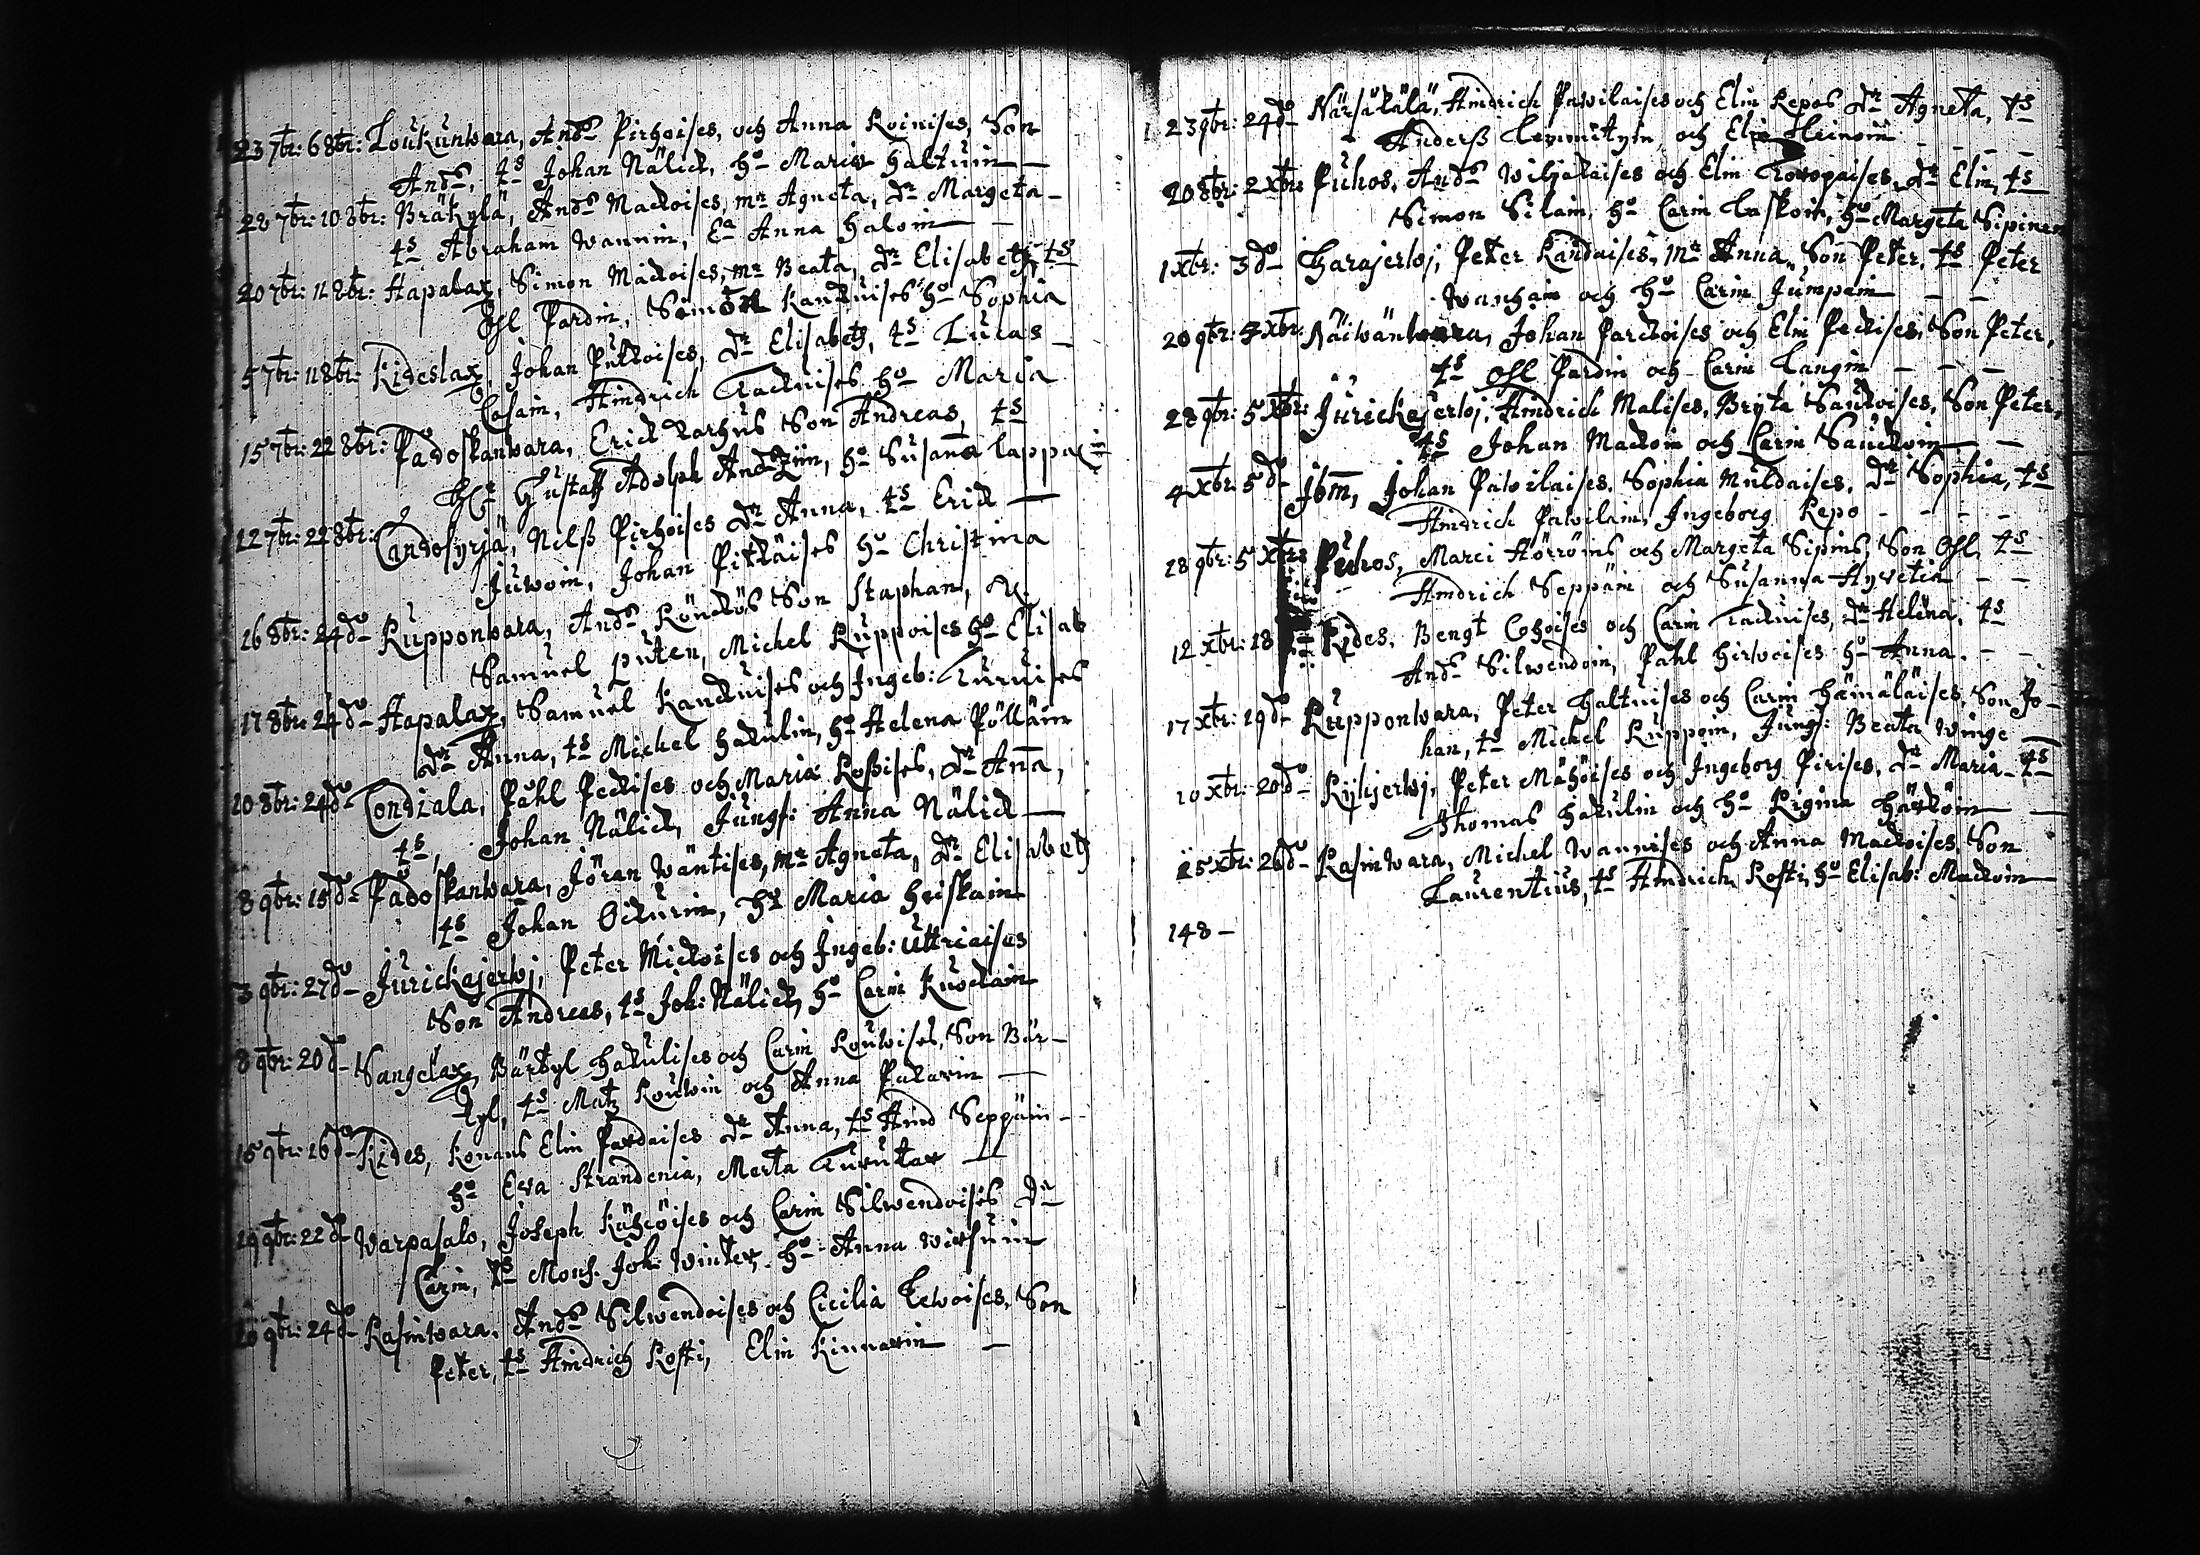 23 7br: 6 8br: Loukunwara, Andrs Pirhoises, och Anna Koinises, Son
Andrs, ts Johan Nälick, ho Maria Haltuin —
22 7br: 10 8br: Bräkylä, Andrs Mackoises, mr Agneta, dr Margeta —
ts Abraham Wannin, Ea Anna Haloin —
20 7br: 11 8br: Hapalax, Simon Mackoises, mr Beata, dr Elisabeth, ts
Ohl Pardin, Simon Kanckuises ho Sophia
5 7br: 11 8br: Kideslax, Johan Putkoises, dr Elisabeth, ts Lucas —
Casain, Hindrich Tackuises ho Maria
15 7br: 22 8br: Padoskanwara, Erick Karhus Son Andreas, ts
Hr Gustaff Adolph, ho Susanna Lappal:
12 7br: 22 8br: Candosyrjä, Nilß Pirhoises dr Anna, ts Erick —
Juwoin, Johan Pitkäises ho Christina
16 8br: 24 do — Rupponwara, Andrs Rönckös Son Staphan, ts
Samuel Puten, Michel Ruppoises ho Elisab
17 8br: 24 do — Hapalax, Samuel Kanckuises och Ingeb: Turuises
dr Anna, ts Michel Hakulin, ho Helena Pölläin
20 8br: 24 do Condiala, Påhl Peckises och Maria Roßises, dr Anna,
ts, Johan Nälick, Jungf: Anna Nälick —
8 9br: 15 do Padoskanwara, Jöran Wäntises, mr Agneta, dr Elisabeth
ts Johan Ockurin, ho Maria Heiskain
3 9br: 27 do — Jurickajerwj, Peter Mickoises och Ingeb: Uttriaises
Son Andreas, ts Joh: Nälick, ho Carin Kuockain
8 9br: 20 d — Sangelax, Bärtyl Hakulises och Carin Kouwises, Son Bär —
tyl, ts Matz Kouwin och Anna Pakarin —
15 9br: 16 do — Kides, Konans Elin Pardaises dr Anna, ts Hind Seppäin —
ho Eva Strandenia, Merta Turutar —
19 9br: 22 d — Warpasalo, Joseph Kähcöises och Carin Silwendoises dr
Carin, ts Mons. Joh: Winter, ho Anna Wirsuin
20 9br: 24 d — Kasinwara, Andrs Silwendoises och Cicilia Lewoises, Son
Peter, ts Hindrich Rosti, Elin Kinnarin —
23 9br: 24 do Närsäkälä, Hindrich Pawilaises och Elin Repos dr Agneta, ts
Anderß Lemmityin och Elin Heinoin
20 8br: 2 xbr: Puhos, Andrs Wiljakaises och Elin Toropaises, dr Elin, ts
Simon Silain, ho Carin Laskoin, ho Margeta Sipinen
1 xbr: 3 do — Harajerwj, Peter Kandaises, mr Anna, Son Peter, ts Peter
Wanhain och ho Carin Jumpain — —
20 9br: 4 xbr: Näiwänwara, Johan Parckoises och Elin Peckises, Son Peter,
ts Ohl Pardin och Carin Langin — — —
28 9br: 5 xbr: Jurickajerwj, Hindrich Malises, Bryta Sauckoises, Son Peter,
ts Johan Mackoin och Carin Sauckoin — —
4 xbr: 5 do — Jbm, Johan Pawilaises, Sophia Muldaises, dr Sophia, ts
Hindrich Pawilain, Ingeborg Repo — — — —
28 9br: 5 xbr: Puhos, Marci Hörröins och Margeta Sipins, Son Ohl, ts
Hindrich Seppäin och Susanna — —
12 xbr: 18 Kides, Bengt Cohoises och Carin Tackuises, dr Helena, ts
Andrs Silwendoin, Påhl Hirwoises ho Anna. — —
17 xbr: 19 do Rupponwara, Peter Haltuises och Carin Hämäläises, Son Jo —
han, ts Michel Ruppoin, Jungf: Beata Winge —
10 xbr: 20 do — Kyhjerwj, Peter Mähöises och Ingeborg Pirises, dr Maria — ts
Thomas Hakulin och ho Rigina Härköin —
25 xbr: 26 do — Kasinwara, Michel Wannises och Anna Mackoises, Son
Laurentius, ts Hindrich Rosti, ho Elisab: Mackoin
148 —